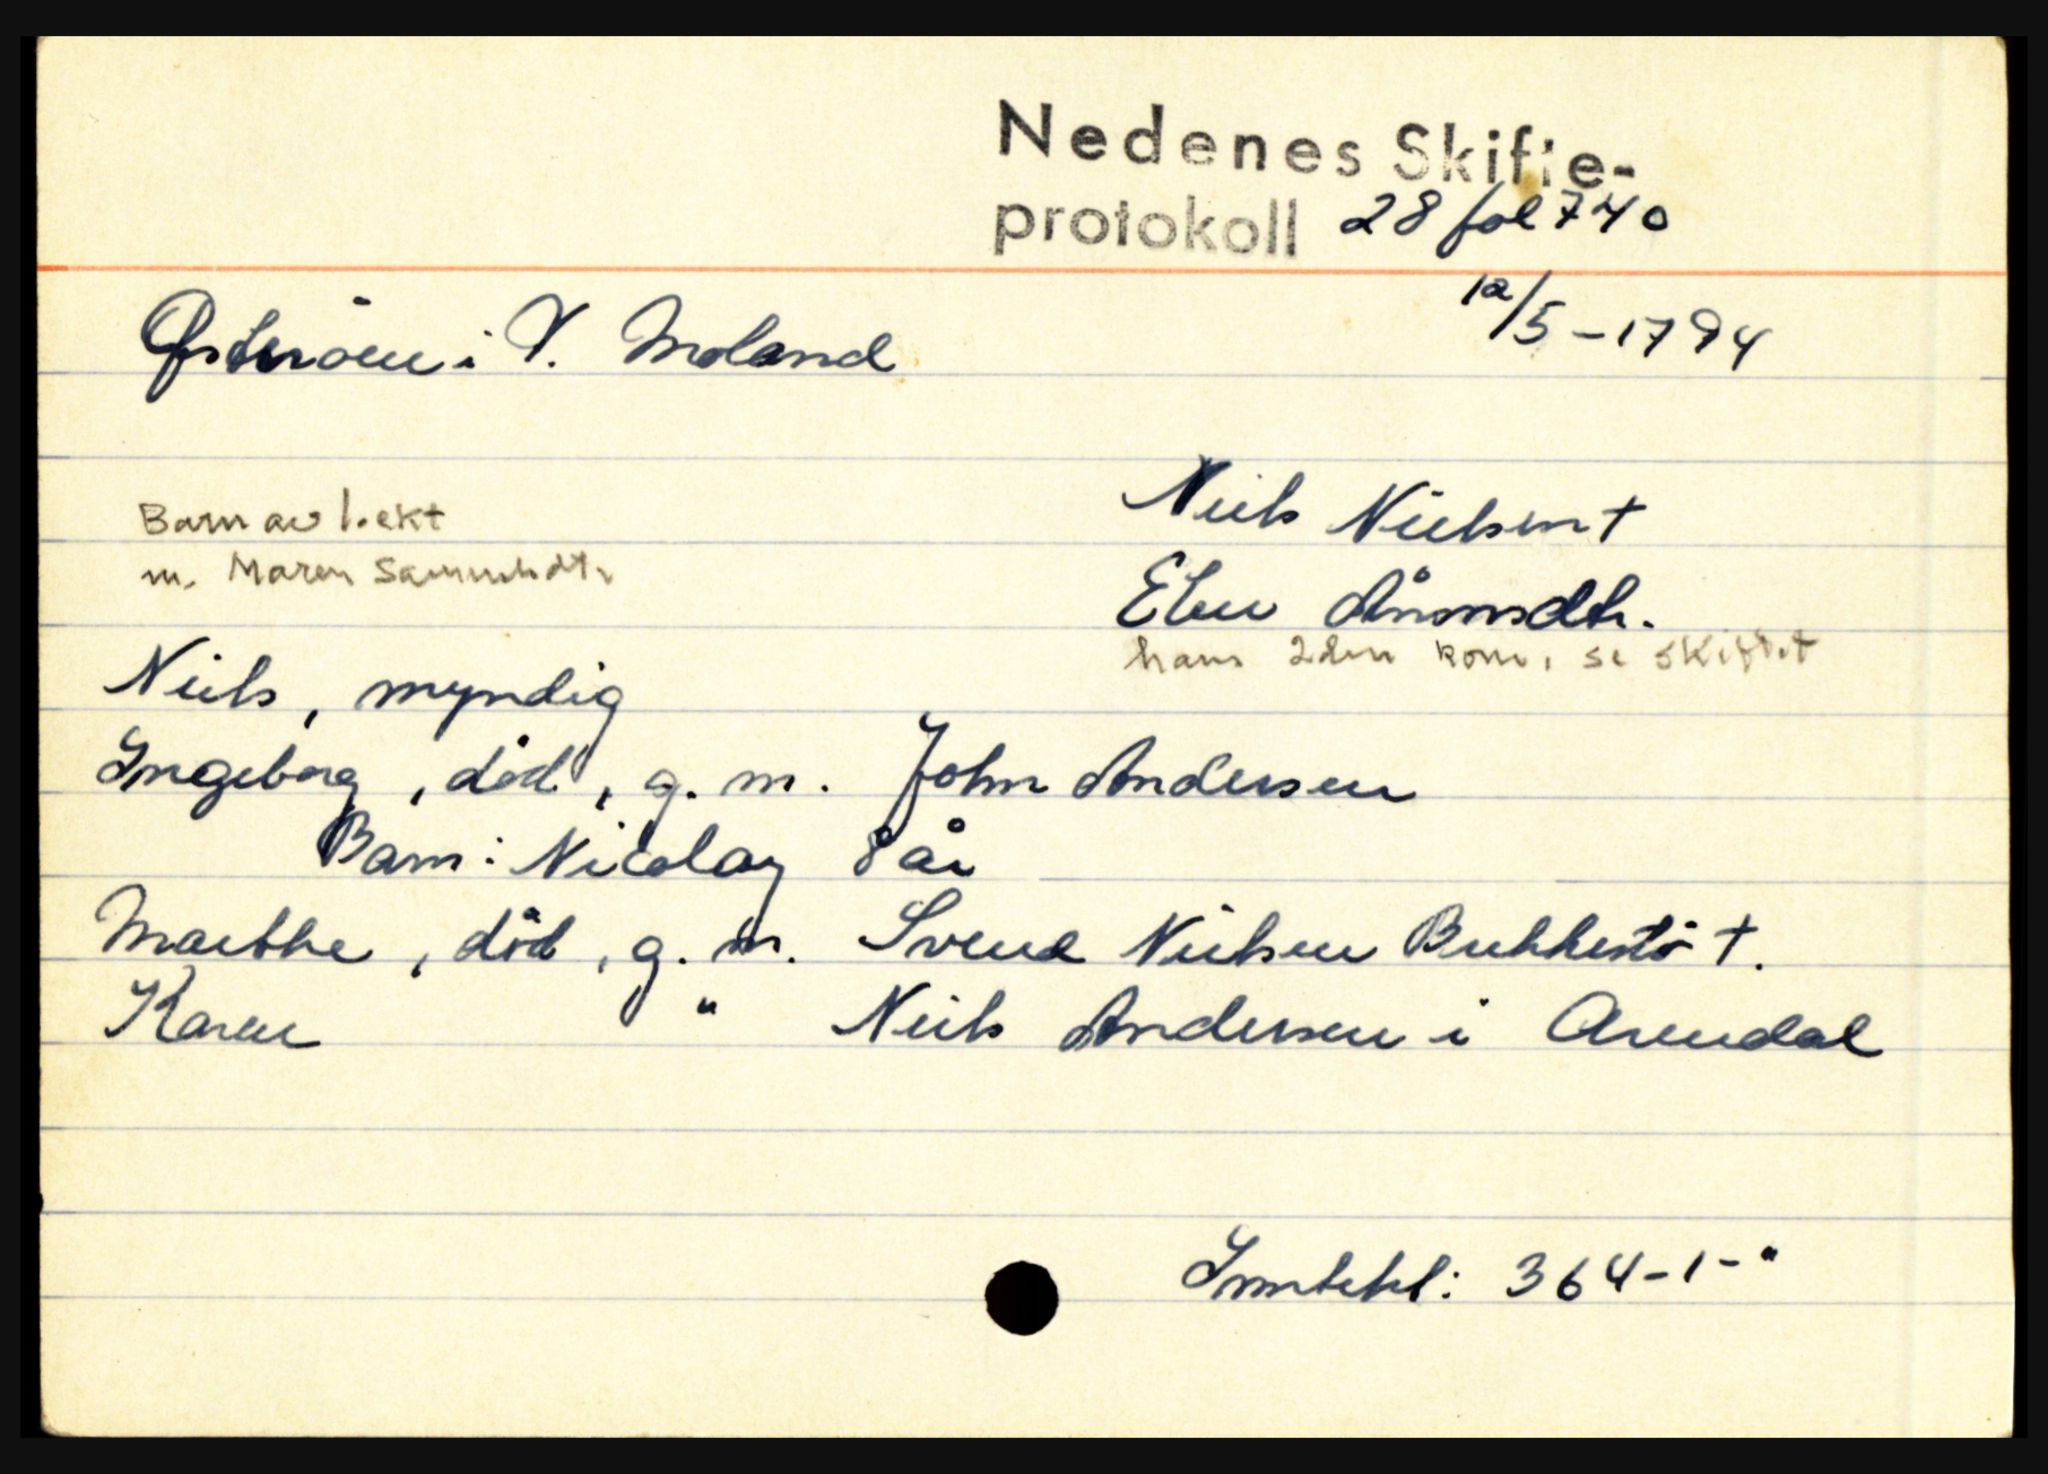 Nedenes Skifte-
protokoll 28 fol 740
12/5-1794
Østerøen i V. Moland
Niels Nielsen †
Barn av 1. ekt
m. Maren Sammelsdtr
Elen Aanonsdtr.
hans 2den kone, se skiftet
Niels, myndig
Ingeborg, død, g. m. John Andersen
Barn: Nicolay 8 år
Marthe, død, g. m. Svend Nielsen Bukkestø †.
Karen " Niels Andersen i Arendal
Inntekt: 364-1-"